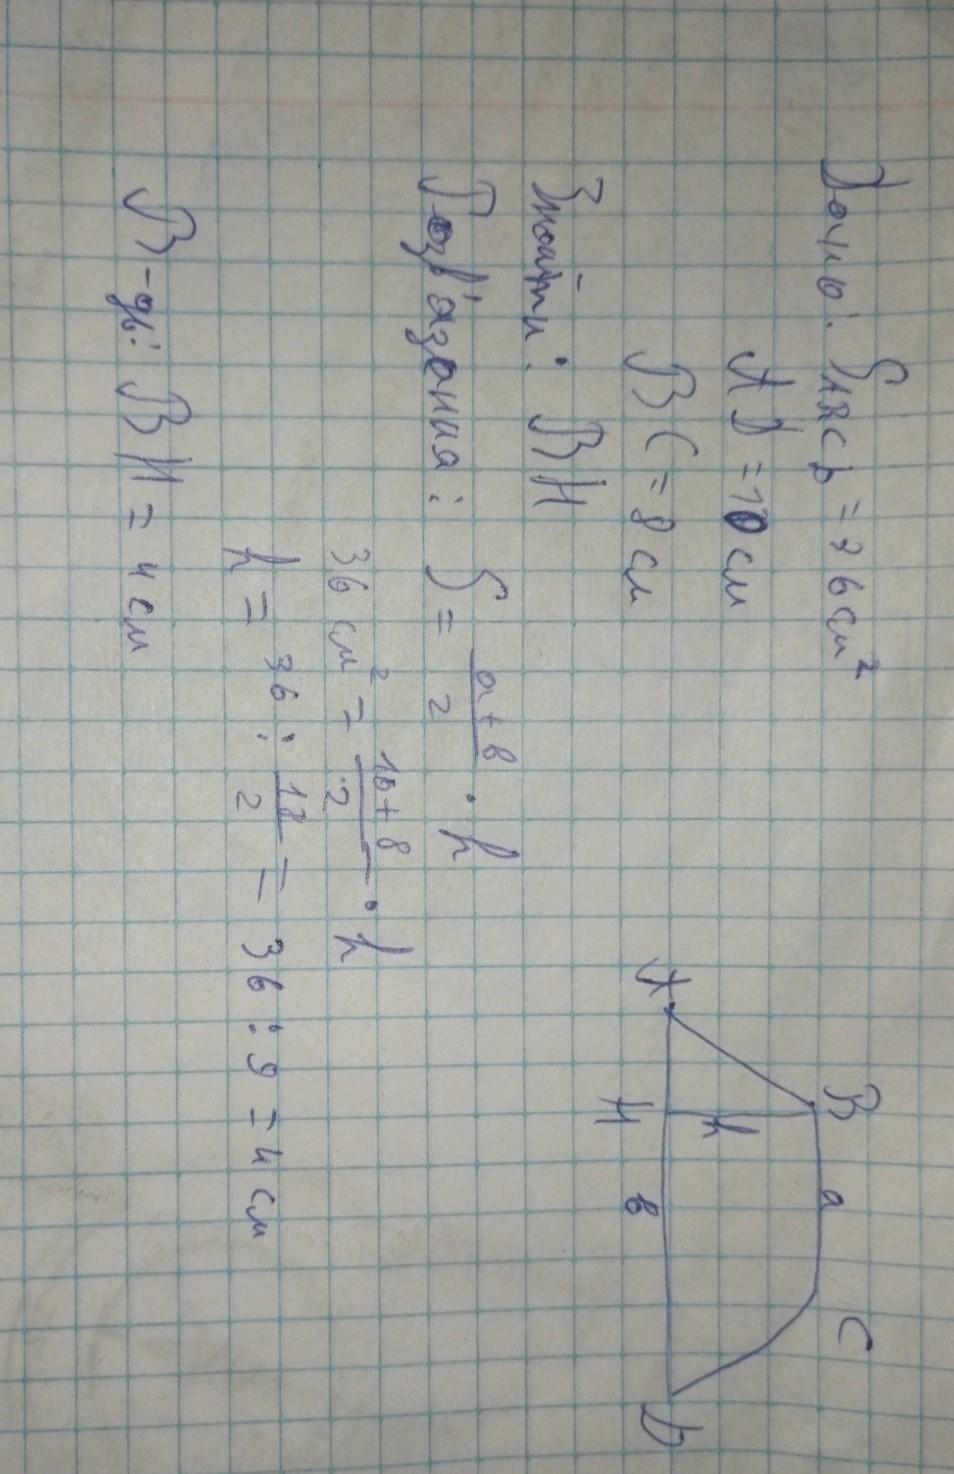 Дано: S ABCD = 36 см²
AD = 10 см
BC = 8 см
Знайти: BH
Розв'язання: S = a+b/2 · h
36 см² = 10+8/2 · h
h = 36 : 18/2 = 36 : 9 = 4 см
В-дь: BH = 4 см
B a C
h
A H b D